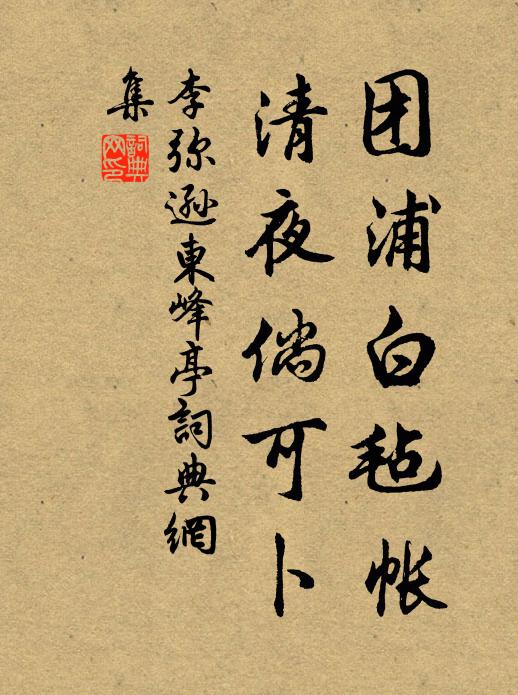 团浦白毡帐
清夜倘可卜
李弥遜東峰亭詞典網
集
詞典
网印